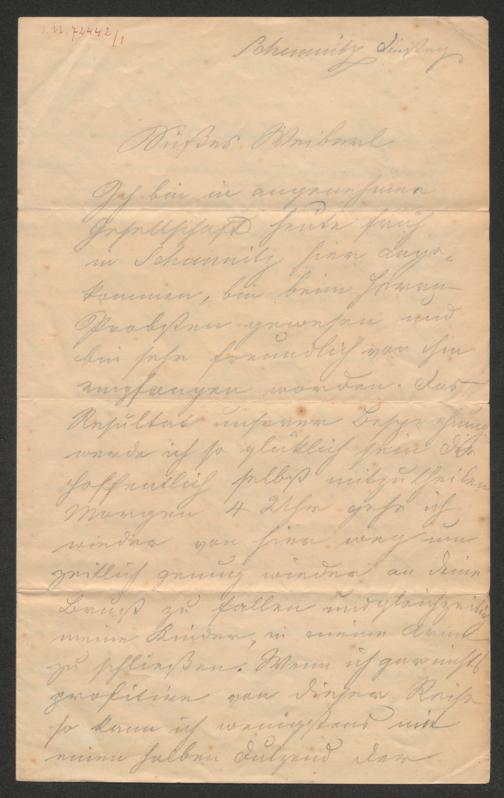 I.N. 72442/1
Schemnitz Dinstag
Süßes Weiberl
Ich bin in angenehmer
Gesellschaft heute früh
in Schemnitz hier ange-
kommen, bin beim Herrn
Probsten gewesen und
bin sehr freundlich von ihm
empfangen worden. Das
Resultat unserer Besprechung
werde ich so glüklich sein Dir
hoffentlich selbst mitzutheilen
Morgen 4 Uhr gehe ich
wieder von hier weg um
zeitlich genug wieder an Deine
Brust zu fallen und gleichzeitig
meine Kinder, in meine Arme
zu schließen. Wenn ich gar nichts
profitire von dieser Reise
so kann ich wenigstens mit
einem halben Dutzend der